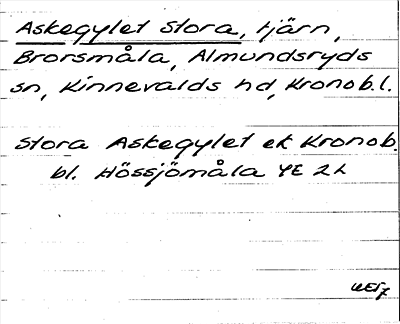 Askegylet Stora, tjärn,
Brorsmåla, Almundsryds
sn, Kinnevalds hd, Kronob.l.
Stora Askegylet ek Kronob.
bl. Hössjömåla YE 2L